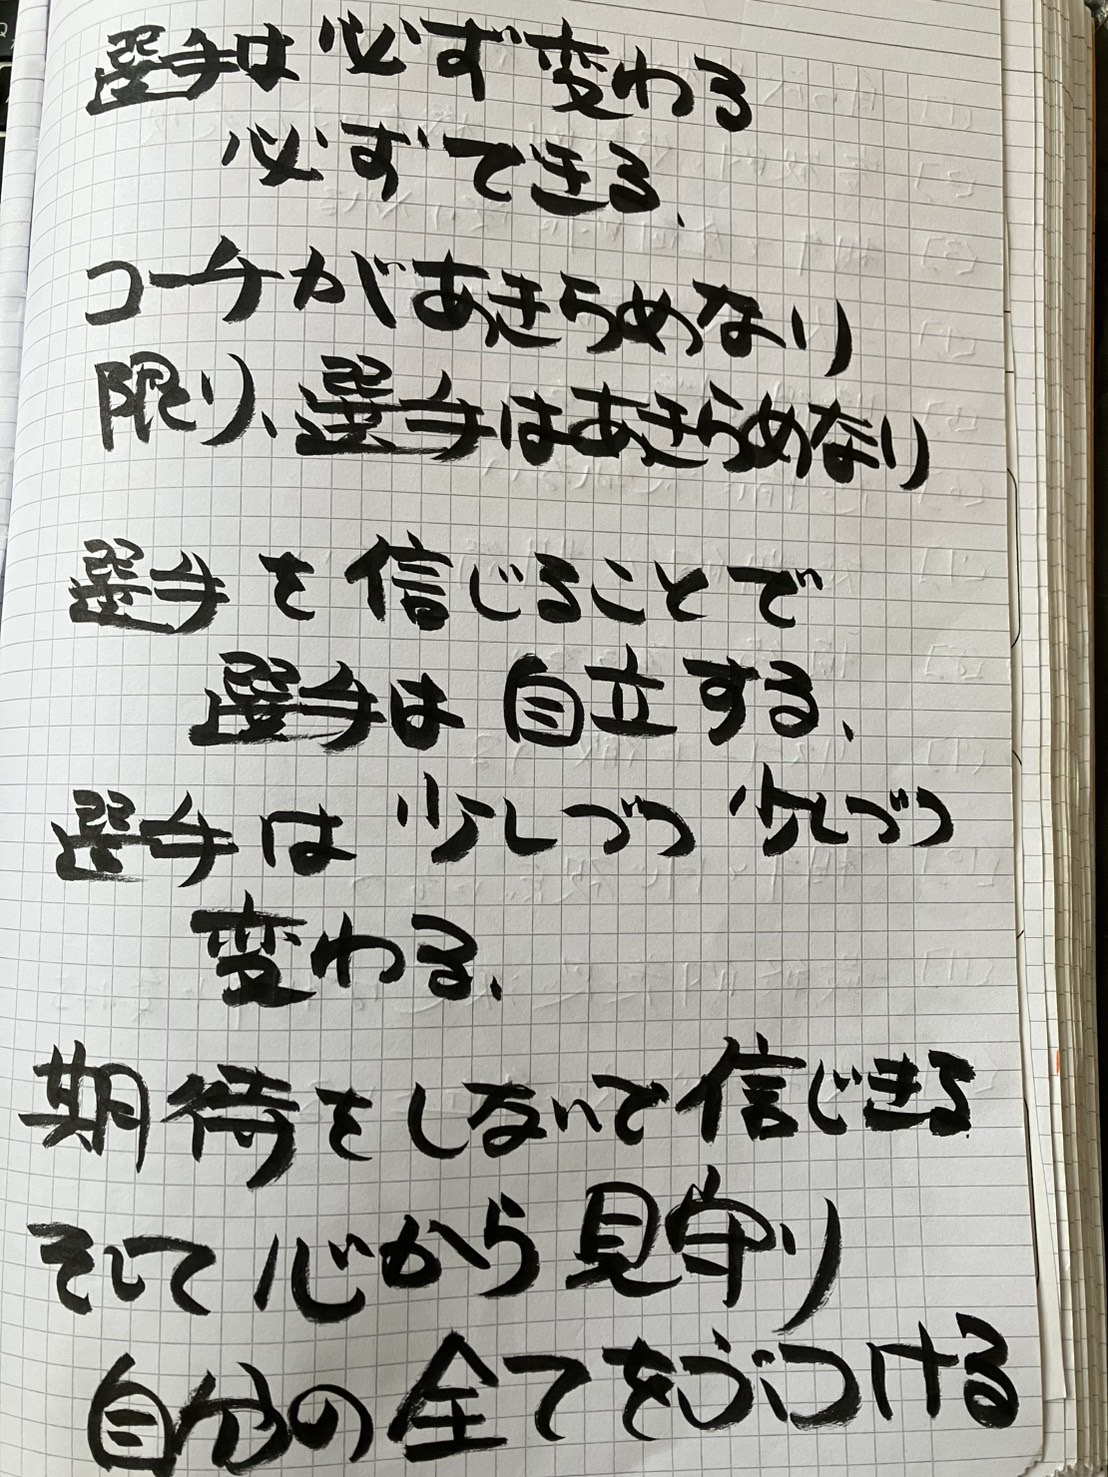 選手は必ず変わる
必ずできる、
コーチがあきらめない
限り、選手はあきらめない
選手を信じることで
選手は自立する、
選手は少しづつ少しづつ
変わる、
期待をしないで信じきる
そして心から見守り
自分の全てをぶつける